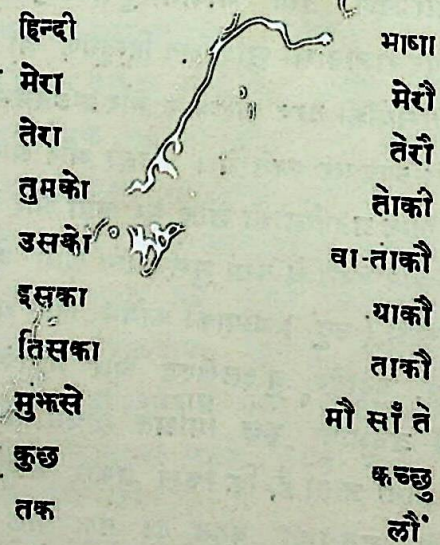 हिन्दी भाषा
मेरा मेरौ
तेरा तेरौ
तुमको तोकी
उसको वा-ताकौ
इसका याकौ
तिसका ताकौ
मुझसे मौ साँ ते
कुछ कच्छु
तक लौं